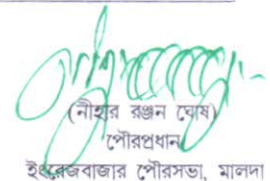 (নীহার রঞ্জন ঘোষ)
পৌরপ্রধান
ইংরেজবাজার পৌরসভা, মালদা